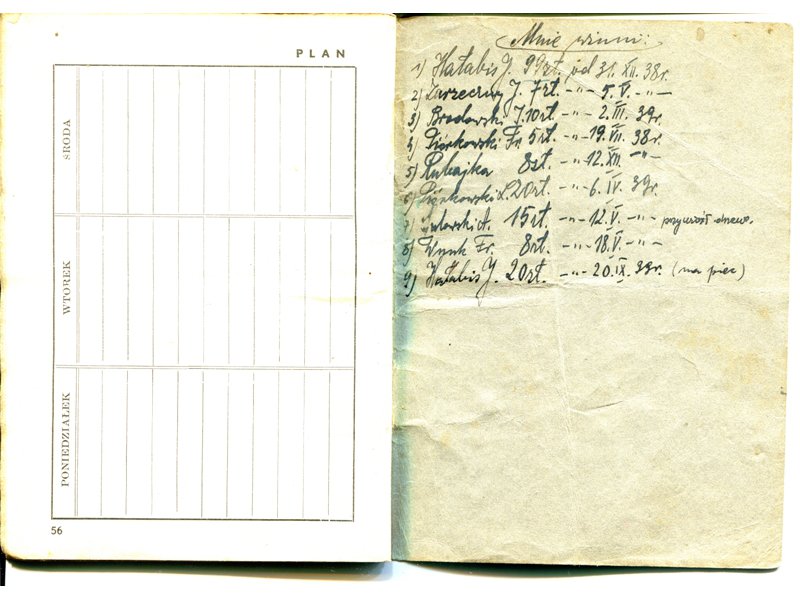 PLAN
ŚRODA
WTOREK
PONIEDZIAŁEK
56
Mnie winni:
1) Hałabis J. 99zł. od 31. XII. 38r.
2) Zarzeczny J. 7zł. -„- 5. V. -„-
3) Brodowski J. 10zł. -„- 2. III. 39r.
4) Piórkowski Fr. 5zł. -„- 19. VII. 38r.
5) Rubajka 8zł. -„- 12. XII. -„-
6) Piórkowski 20zł. -„- 6. IV. 39r.
7) 15zł. -„- 12. V. -„- drzewo.
8) Wnuk Fr. 8zł. -„- 18. V. -„-
9) Hałabis J. 20zł. -„- 20. IX. 39r. (na piec)